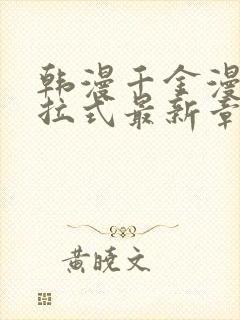 韩漫千金漫
拉式最新章
黄晓文